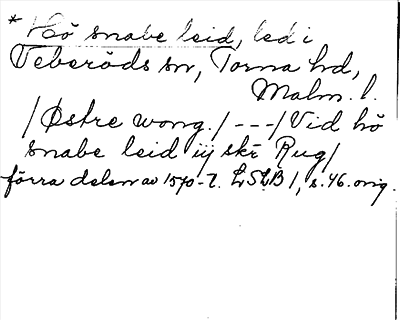 * Hö snabe leid, led i
Veberöds sn, Torna hd,
Malm. l.
/Østre wong./ ---/Vid hö
snabe leid iij skr Rug/
förra delen av 1570-t. LSLB 1, s. 46. orig.